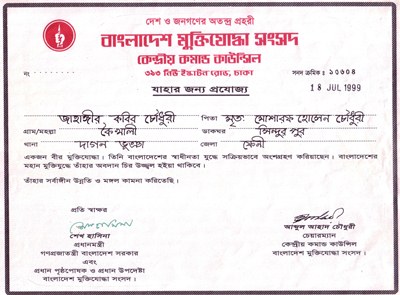 দেশ ও জনগণের অতন্দ্র প্রহরী
বাংলাদেশ মুক্তিযোদ্ধা সংসদ
কেন্দ্রীয় কমান্ড কাউন্সিল
৩১৩ নিউ ইস্কাটন রোড, ঢাকা
সনদ ক্রমিক ঃ ১০৬০৪
যাহার জন্য প্রযোজ্য
18 JUL 1999
জাহাঙ্গীর কবির চৌধুরী পিতা মৃত: মোশারফ হোসেন চৌধুরী
গ্রাম/মহল্লা ডাকঘর সিন্দুরপুর
থানা দাগন ভূঞা জেলা ফেনী
একজন বীর মুক্তিযোদ্ধা। তিনি বাংলাদেশের স্বাধীনতা যুদ্ধে সক্রিয়ভাবে অংশগ্রহণ করিয়াছেন। বাংলাদেশের
মহান মুক্তিযুদ্ধে তাঁহার অবদান চির উজ্জ্বল হইয়া থাকিবে।
তাঁহার সর্বাঙ্গীন উন্নতি ও মঙ্গল কামনা করিতেছি।
প্রতি স্বাক্ষর
শেখ হাসিনা
প্রধানমন্ত্রী
গণপ্রজাতন্ত্রী বাংলাদেশ সরকার
এবং
প্রধান পৃষ্ঠপোষক ও প্রধান উপদেষ্টা
বাংলাদেশ মুক্তিযোদ্ধা সংসদ।
আব্দুল আহাদ চৌধুরী
চেয়ারম্যান
কেন্দ্রীয় কমান্ড কাউন্সিল
বাংলাদেশ মুক্তিযোদ্ধা সংসদ।